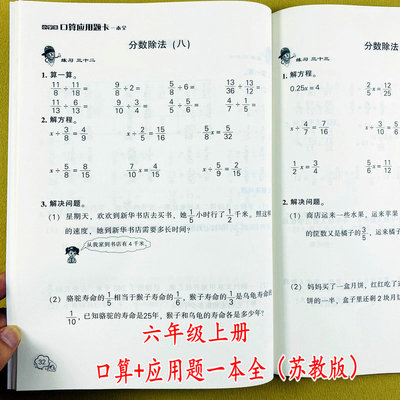 口算应用题卡 一本全
分数除法（八）
练习 三十二
1. 算一算。
11/8 ÷ 11/18 9/8 ÷ 2 5/8 ÷ 6 13/36 ÷ 13/12
11/13 ÷ 6/13 9/11 ÷ 6/11 5/9 ÷ 5/6 4/7 ÷ 1/5
2. 解方程。
x ÷ 3/8 = 4/9 x ÷ 2/5 = 15/16 5/8 x = 5/32
x ÷ 5/8 = 8/15 7/10 x = 4/15 x ÷ 5/9 = 2/15
3. 解决问题。
（1）星期天，欢欢到新华书店去买书，她1/5小时行了1/2千米，照这样
的速度，她到新华书店需要多长时间？
从我家到书店有4千米。
（2）骆驼寿命的1/5相当于猴子寿命的1/6，猴子寿命的1/3是乌龟寿命的
1/10，已知骆驼的寿命是25年，猴子和乌龟的寿命各是多少年？
32
练习 三十三
1. 解方程。
0.25x = 4
x ÷ 4/7 = 7/16
1/2 x = 3/4
2. 解决问题。
（1）商店运来一些水果，运来苹果
的筐数又是橘子的3/5，运来橘
（2）妈妈买了一盒月饼，红红吃了
饼的一半，盒子里还剩2块月饼
六年级上册
口算+应用题一本全（苏教版）